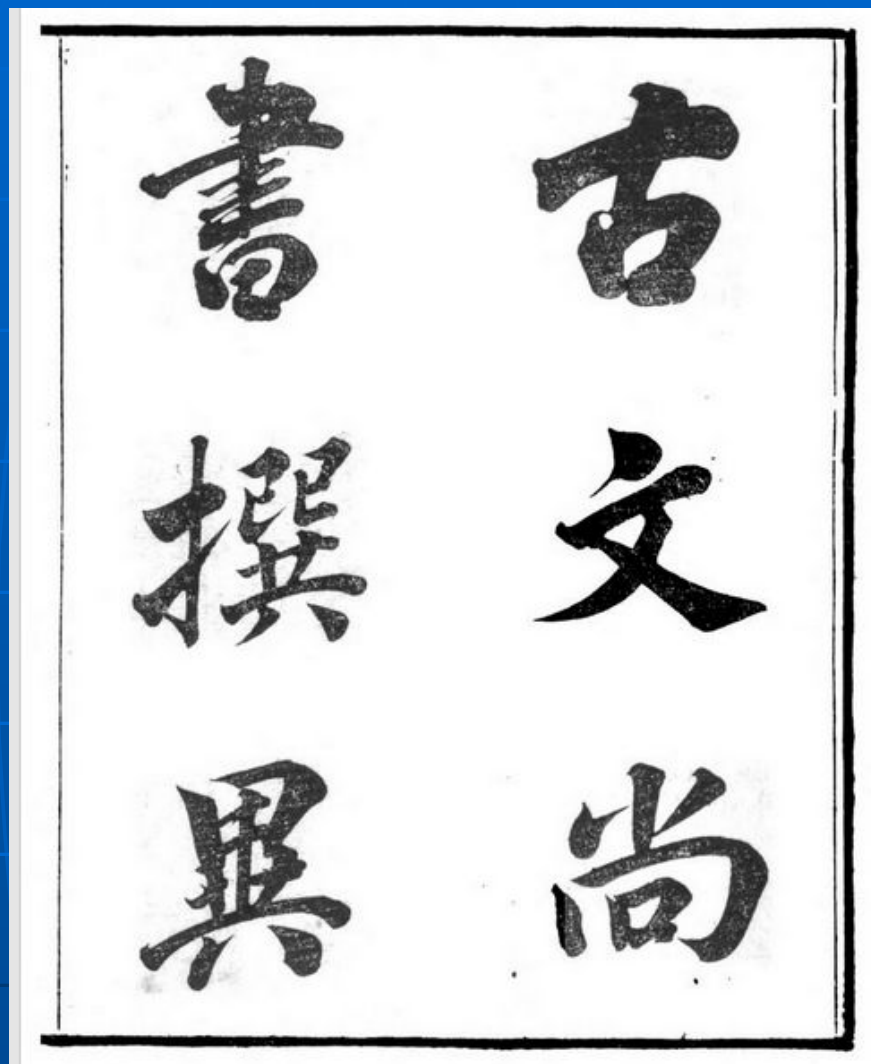 古文尚
書撰異